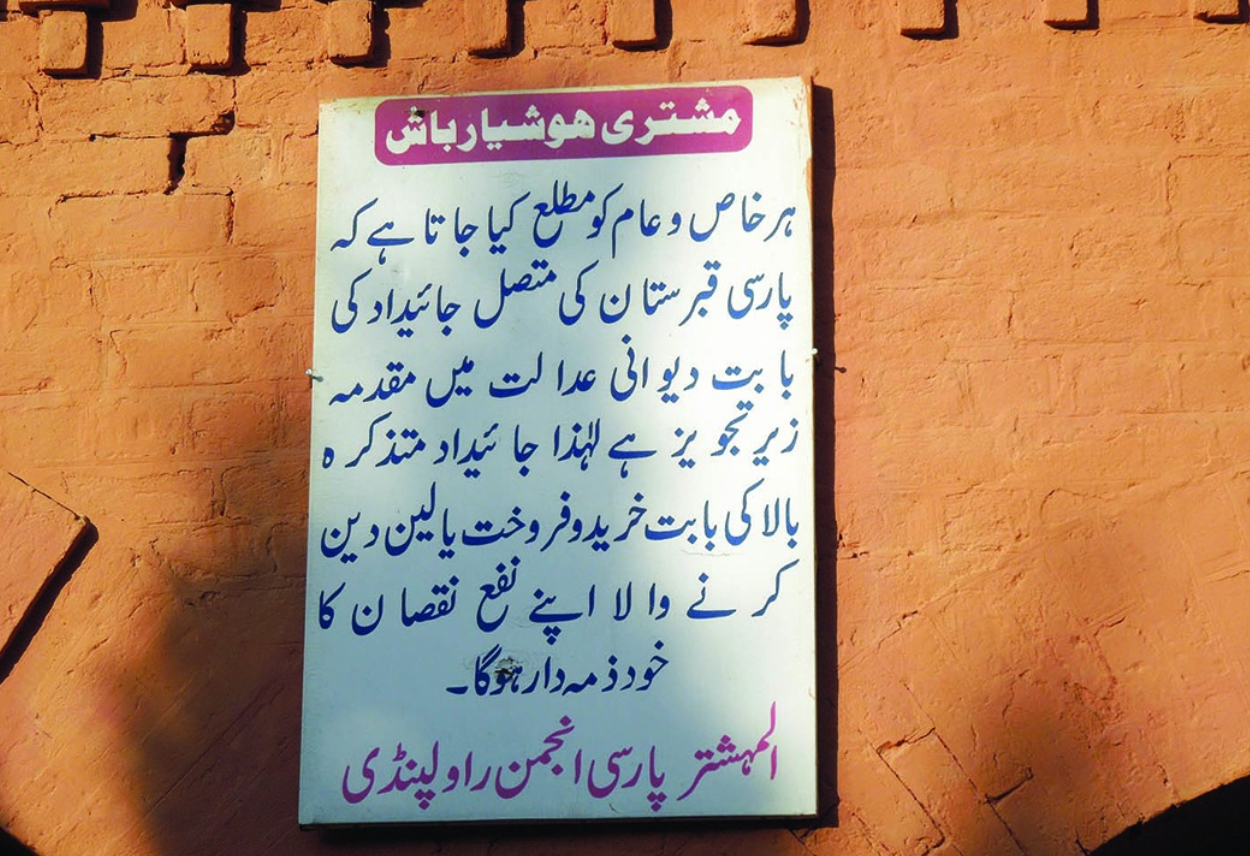 مشتری هوشیار باش
ہر خاص و عام کو مطلع کیا جاتا ہے کہ
پارسی قبرستان کی متصل جائیداد کی
بابت دیوانی عدالت میں مقدمہ
زیر تجویز ہے لہٰذا جائیداد متذکرہ
بالا کی بابت خرید و فروخت یا لین دین
کرنے والا اپنے نفع نقصان کا
خود ذمہ دار ہوگا۔
المہشتر پارسی انجمن راولپنڈی